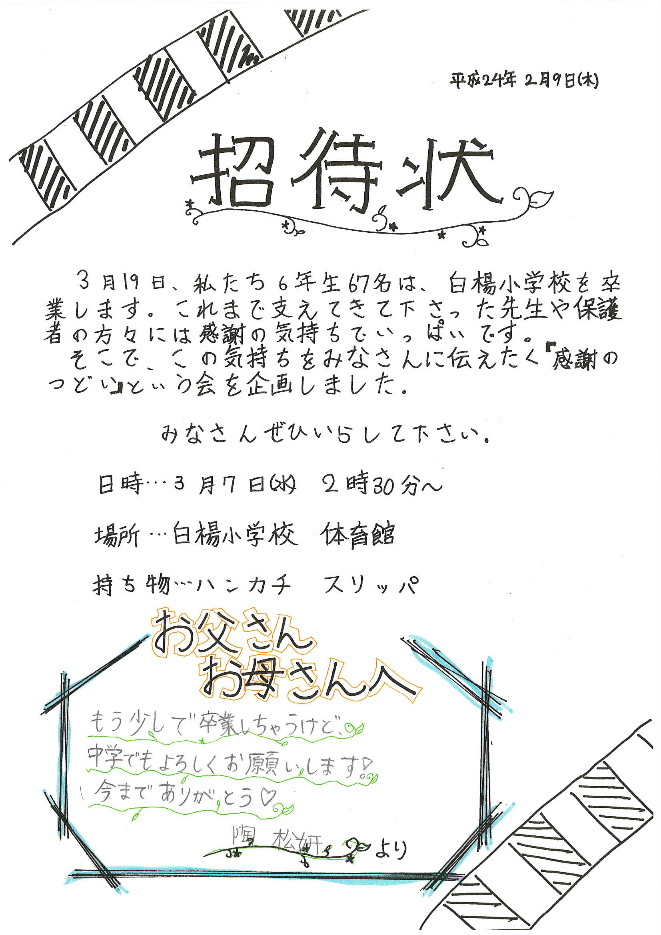 平成24年2月9日(木)
招待状
3月19日、私たち6年生67名は、白楊小学校を卒
業します。これまで支えてきて下さった先生や保護
者の方々には感謝の気持ちでいっぱいです。
そこで、この気持ちをみなさんに伝えたく『感謝の
つどい』という会を企画しました.
みなさんぜひいらして下さい.
日時…3月7日(水) 2時30分～
場所…白楊小学校 体育館
持ち物…ハンカチ スリッパ
お父さん
お母さんへ
もう少しで卒業しちゃうけど、
中学でもよろしくお願いします♡
今までありがとう♡
陶 松妍 より